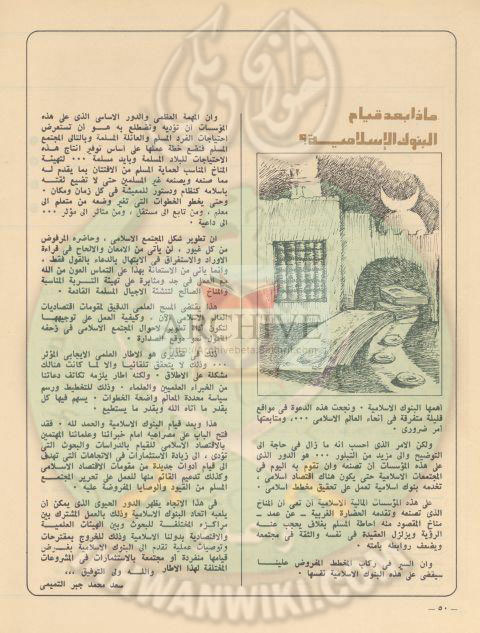 ماذا بعد قيام
البنوك الإسلامية؟
أهمها البنوك الاسلامية ٠ ونجحت هذه الدعوة في مواقع
قليلة متفرقة في أنحاء العالم الاسلامى ٠٠٠ ومتابعتها
أمر ضرورى ٠
ولكن الأمر الذى أحسب انه ما زال في حاجة الى
التوضيح والى مزيد من التبلور ٠٠٠ هو الدور الذى
على هذه المؤسسات أن تصنعه وان تقوم به اليوم في
المجتمعات الاسلامية حتى يكون هناك اقتصاد اسلامى ،
تخدمه بنوك اسلامية تعمل على تحقيق مخطط اسلامى ٠
على هذه المؤسسات المالية الاسلامية أن تعى أن المناخ
الذى تصنعه وتقدمه الحضارة الغربية ــ عن عمد ــ
مناخ المقصود منه احاطة المسلم بغلاف يحجب عنه
الرؤية ويزلزل العقيدة في نفسه والثقة في مجتمعه
ويضعف روابطه بأمته ٠
وان السير في ركاب المخطط المفروض علينا
سيقضى على هذه البنوك الاسلامية نفسها ٠
وان المهمة العظمى والدور الاساسى الذى على هذه
المؤسسات أن تؤديه وتضطلع به هو أن تستعرض
احتياجات الفرد المسلم والعائلة المسلمة وبالتالى المجتمع
المسلم فتضع خطة عملها على أساس توفير انتاج هذه
الاحتياجات للبلاد المسلمة وبأيد مسلمة ٠٠٠ لتهيئة
المناخ المناسب لحماية المسلم من الافتتان بما يقدم له
مما صنعه ويصنعه غير المسلمين حتى لا تضيع ثقته
باسلامه كنظام ودستور للمعيشة في كل زمان ومكان ٠
وحتى يخطو الخطوات التى تغير وضعه من متعلم الى
معلم ، ومن تابع الى مستقل ، ومن متأثر الى مؤثر ٠٠٠
الى داعية ٠
ان تطوير شكل المجتمع الاسلامى ، وحاضره المرفوض
من كل غيور ، لن يأتى من الامعان والالحاح في قراءة
الاوراد والاستغراق في الابتهال بالدعاء بالقول فقط ٠
وانما يأتى من الاستعانة بهذا على التماس العون من الله
مع العمل في جد ومثابرة على تهيئة التربة المناسبة
والمناخ الصالح لتنشئة الاجيال المسلمة القادمة ٠
هذا يقتضى المسح العلمى الدقيق لمقومات اقتصاديات
العالم الاسلامى الآن ، وكيفية العمل على توجيهها
لتكون لاحوال المجتمع الاسلامى في زحفه
نحو موقع الصدارة ٠
هو الاطار العلمى الايجابى المؤثر
٠٠٠ وذلك لا يتحقق تلقائيا والا لما كانت هنالك
مشكلة على الاطلاق ٠ ولكنه اطار يلزمه تكاتف دعاتنا
من الخبراء العلميين والعلماء ٠ وذلك للتخطيط ورسم
سياسة محددة المعالم واضحة الخطوات ٠ يسهم فيها كل
بقدر ما أتاه الله وبقدر ما يستطيع ٠
هذا وبعد قيام البنوك الاسلامية والحمد لله ٠ فقد
فتح الباب على مصراعيه أمام خبرائنا وعلمائنا المهتمين
بالاقتصاد الاسلامى للقيام بالدراسات والبحوث التى
تؤدى ، الى زيادة الاستثمارات في الاتجاهات التى تهدف
الى قيام أدوات جديدة من مقومات الاقتصاد الاسلامى
وكذلك تدعيم القائم منها للعمل على تحرير المجتمع
المسلم من القيود والوصايا المفروضة عليه ٠
في هذا الاتجاه يظهر الدور الحيوى الذى يمكن أن
يلعبه اتحاد البنوك الاسلامية بالعمل المشترك بين
مراكزه المختلفة للبحوث وبين الهيئات العلمية
والاقتصادية بدولنا الاسلامية وذلك للخروج بمقترحات
وتوصيات عملية تقدم الى البنوك الاسلامية بغرض
قيامها منفردة أو مجتمعة بالاستثمارات في المشروعات
المختلفة لهذا الاطار ٠٠٠ والله ولى التوفيق ٠٠٠
سعد محمد جبر التميمى
ــ ٥٠ ــ
ARCHIVE